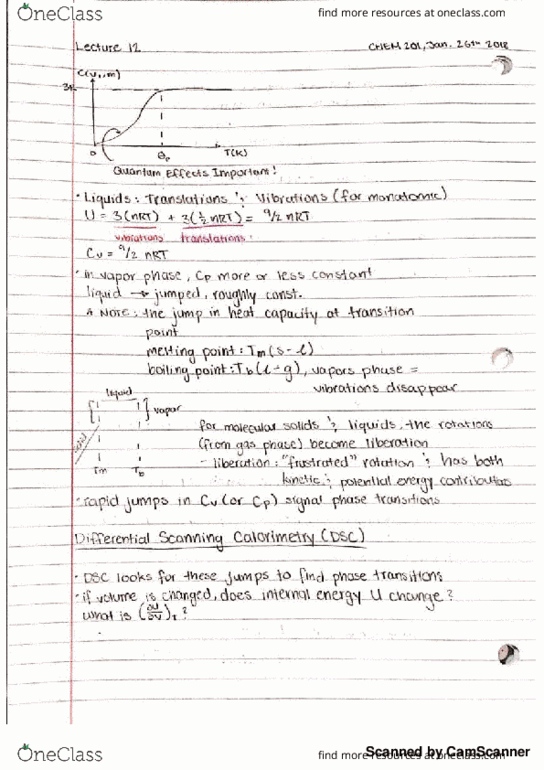 OneClass
find more resources at oneclass.com
Lecture 12
CHEM 201, Jan. 26th 2018
C(v,m)
3R
0
θD
T(K)
Quantum Effects Important!
· Liquids: Translations & Vibrations (for monatomic)
U = 3(nRT) + 3(½ nRT) = 9/2 nRT
vibrations translations
Cv = 9/2 nRT
· in vapor phase, Cp more or less constant
liquid → jumped, roughly const.
* NOTE: the jump in heat capacity at transition
point
melting point: Tm (s-l)
boiling point: Tb (l-g), vapors phase =
vibrations disappear
liquid
vapor
solid
Tm
Tb
for molecular solids & liquids, the rotations
(from gas phase) become liberation
- liberation: "frustrated" rotation & has both
kinetic & potential energy contributions
· rapid jumps in Cv (or Cp) signal phase transitions
Differential Scanning Calorimetry (DSC)
· DSC looks for these jumps to find phase transitions
· if volume is changed, does internal energy U change?
What is (∂U/∂V)T?
OneClass
find more resources at oneclass.com
Scanned by CamScanner